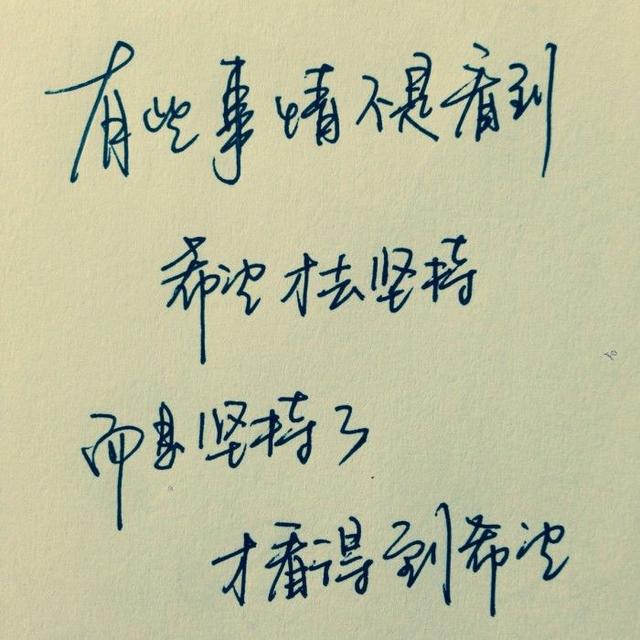 有些事情不是看到
希望才去坚持
而是坚持了
才看得到希望